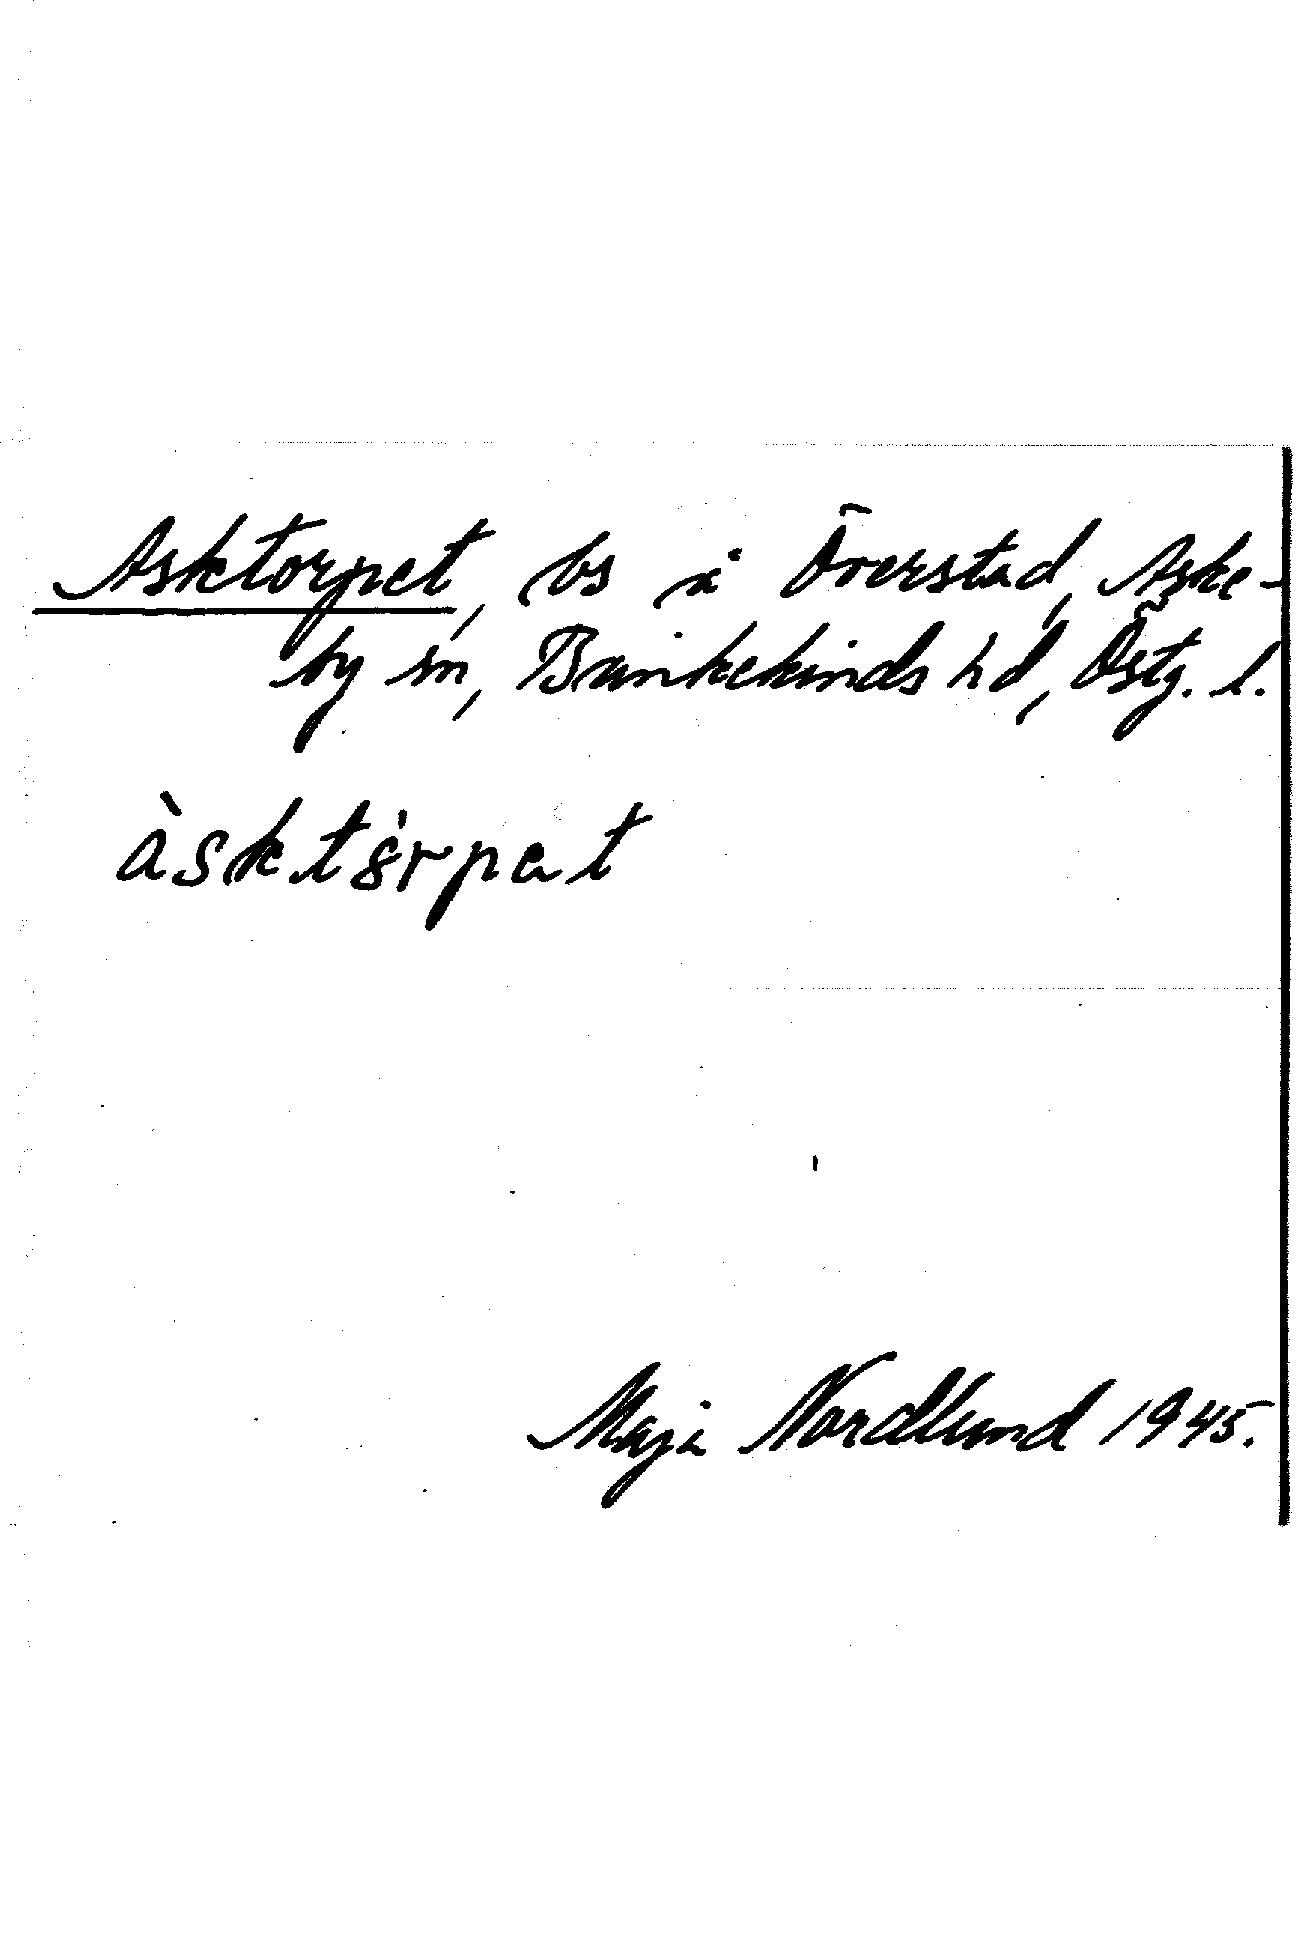 Asktorpet, bs å Överstad, Aske-
by sn, Bankekinds hd, Östg. l.
àsktȯrpət
Maja Nordlund 1945.